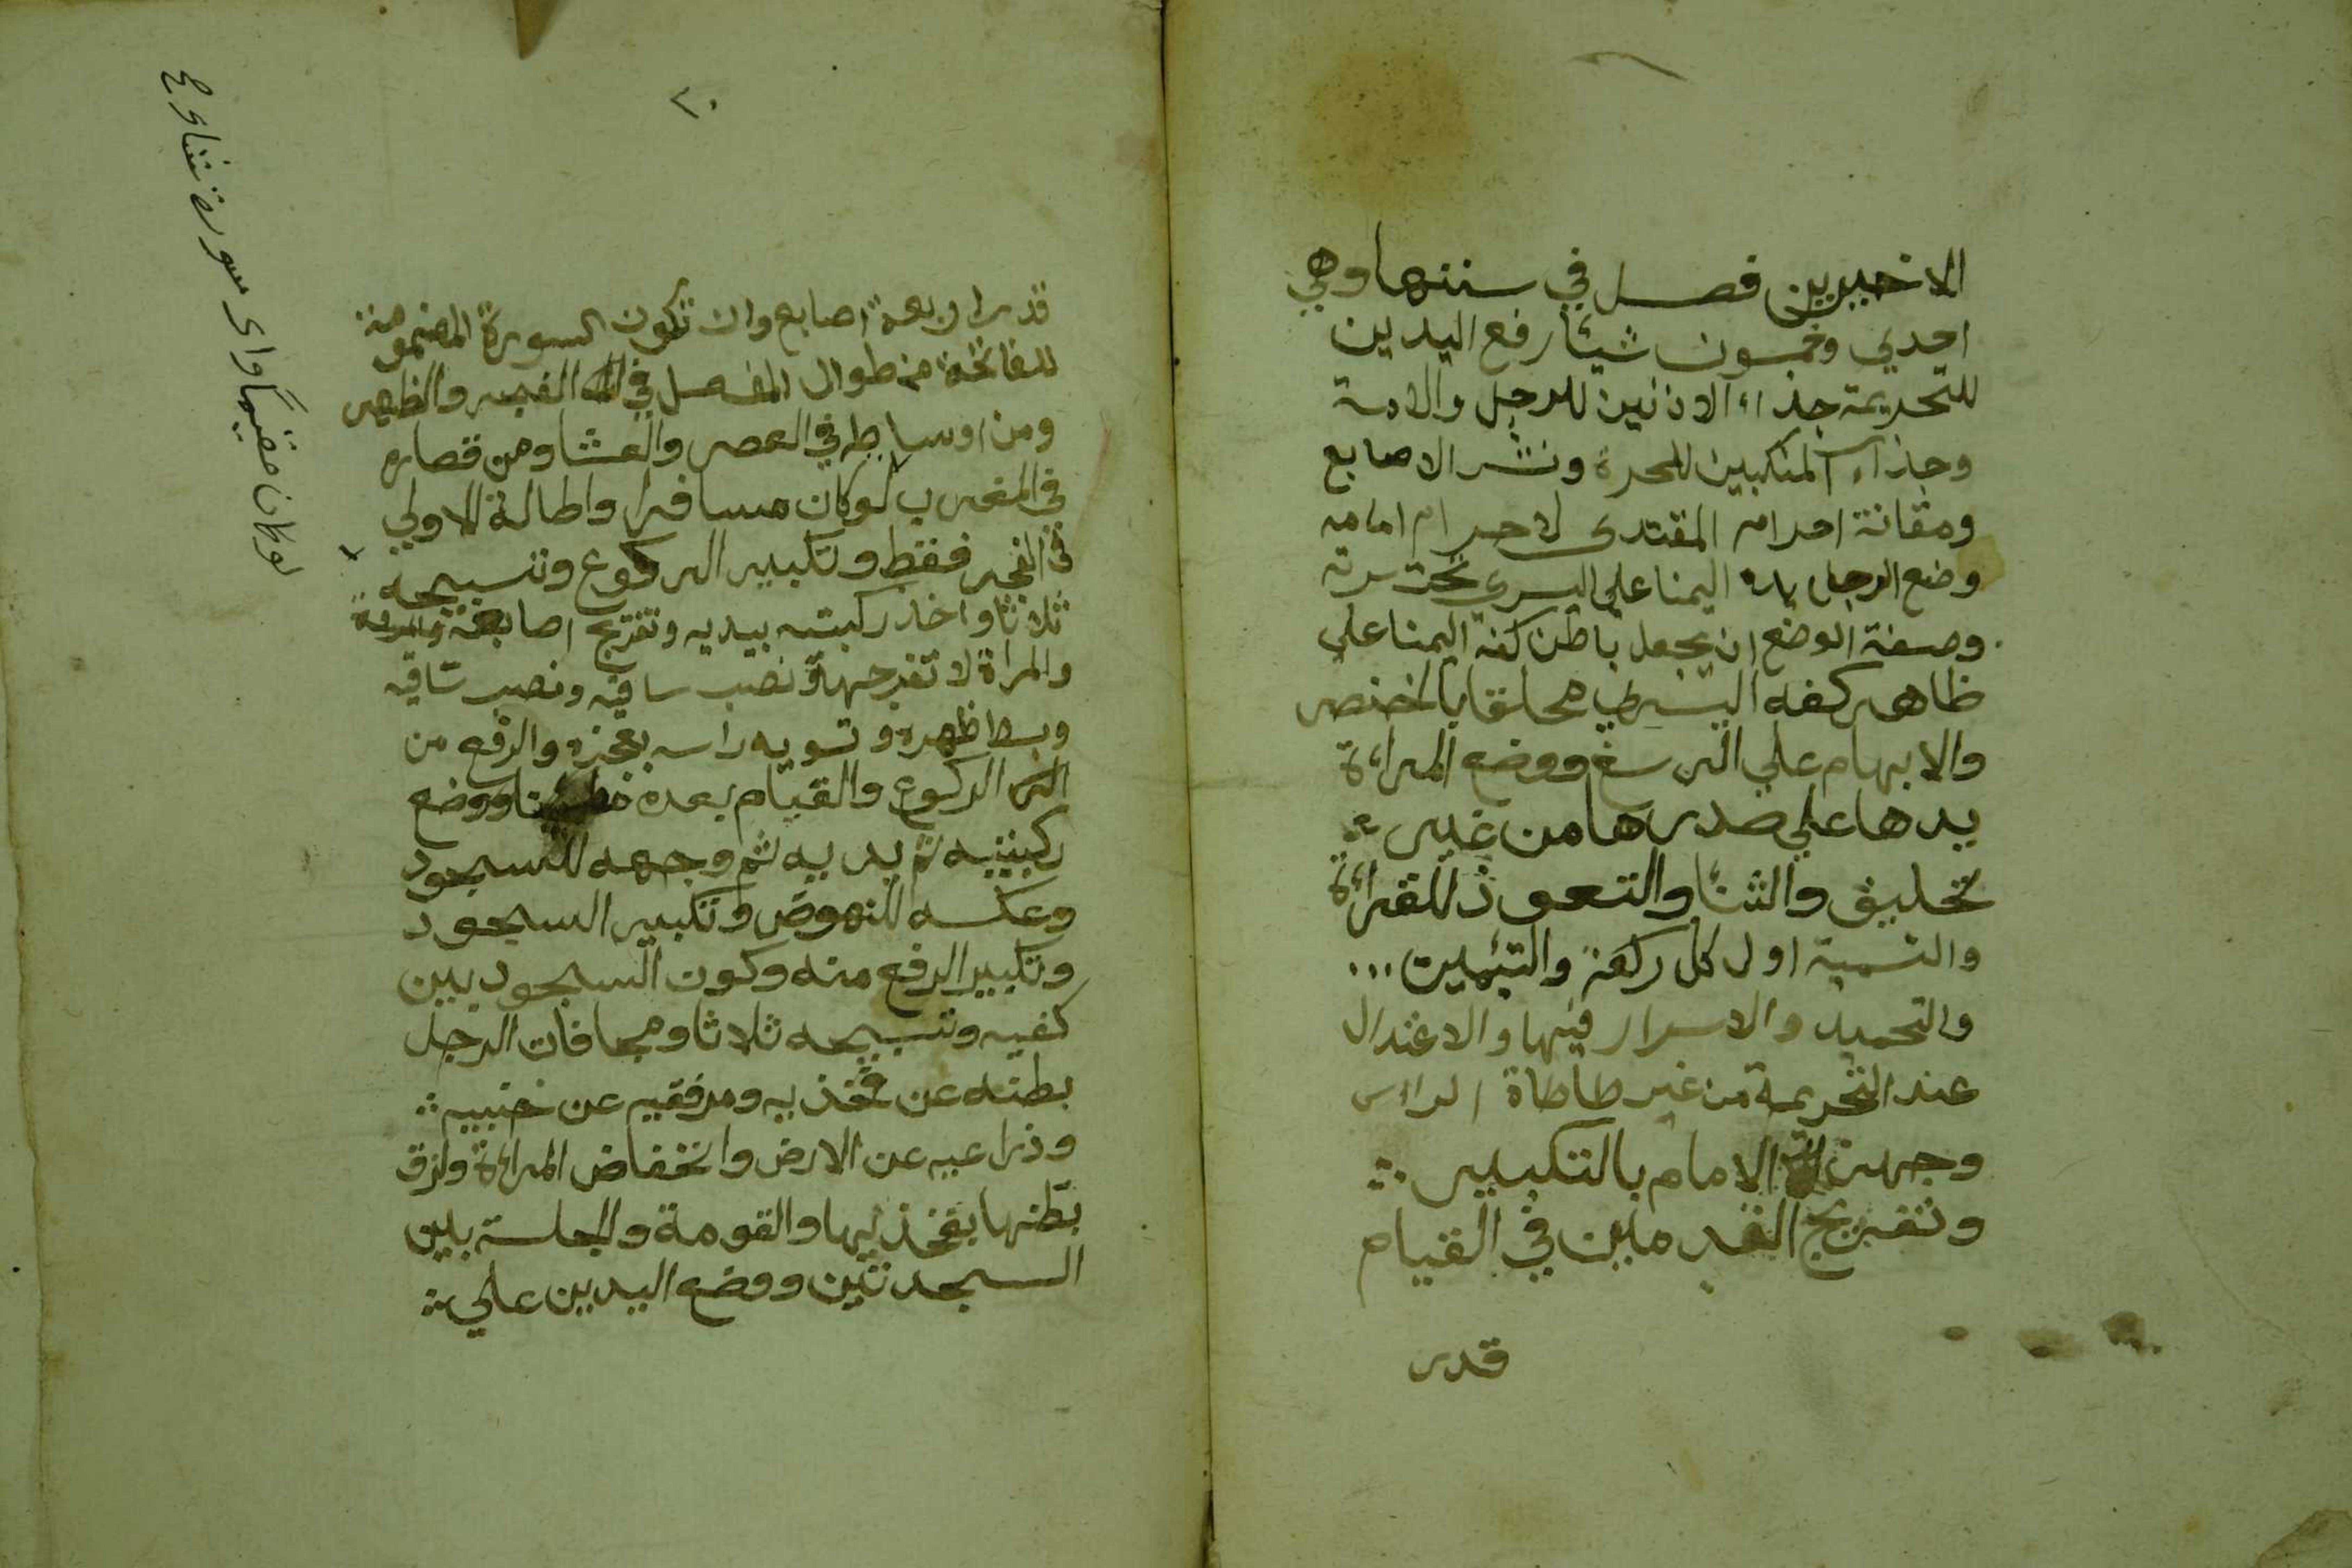 الاخيرين فصل في سننها وهي
احدي وخمسون شيئا رفع اليدين
للتحريمة حذاء الاذنين للرجل والامة
وحذاء المنكبين للحرة ونشر الاصابع
ومقانة احرام المقتدى لاحرام امامه
وضع الرجل يده اليمنا على اليسري تحت سرته
وصفة الوضع ان يجعل باطن كفه اليمنا على
ظاهر كفه اليسري محلقا بالخنصر
والابهام علي الرسغ ووضع المراءة
يدها علي صدرها من غير
تحليق والثنا والتعوذ للقراءة
والتسمية اول كل ركعة والتئمين
والتحميد والاسرار فيها والاعتدال
عند التحريمة من غير طاطاة الراس
وجهر الامام بالتكبير
وتفريج القدمين في القيام
قدر
٢٠
قدر اربعة اصابع وان تكون السورة المضمومة
للفاتحة من طوال المفصل في الفجر والظهر
ومن اوساطه في العصر والعشا ومن قصاره
في المغرب لوكان مسافرا واطالة الاولي
في الفجر فقط وتكبير الركوع وتسبيحه
ثلاثا واخذ ركبتيه بيديه وتفريج اصابعه
والمراة لا تفرجها ونصب ساقيه ونصب ساقيه
وبسط ظهره وتسويه راسه بعجزه والرفع من
الركوع والقيام بعده مطمئنا ووضع
ركبتيه ثم يديه ثم وجهه للسجود
وعكسه للنهوض وتكبير السجود
وتكبير الرفع منه وكون السجود بين
كفيه وتسبيحه ثلاثا ومجافات الرجل
بطنه عن فخذيه ومرفقيه عن جنبيه
وذراعيه عن الارض وانخفاض المراءة ولزق
بطنها بفخذيها والقومة والجلسة بين
السجدتين ووضع اليدين علي
لوكان مقيما واى سورة شاء